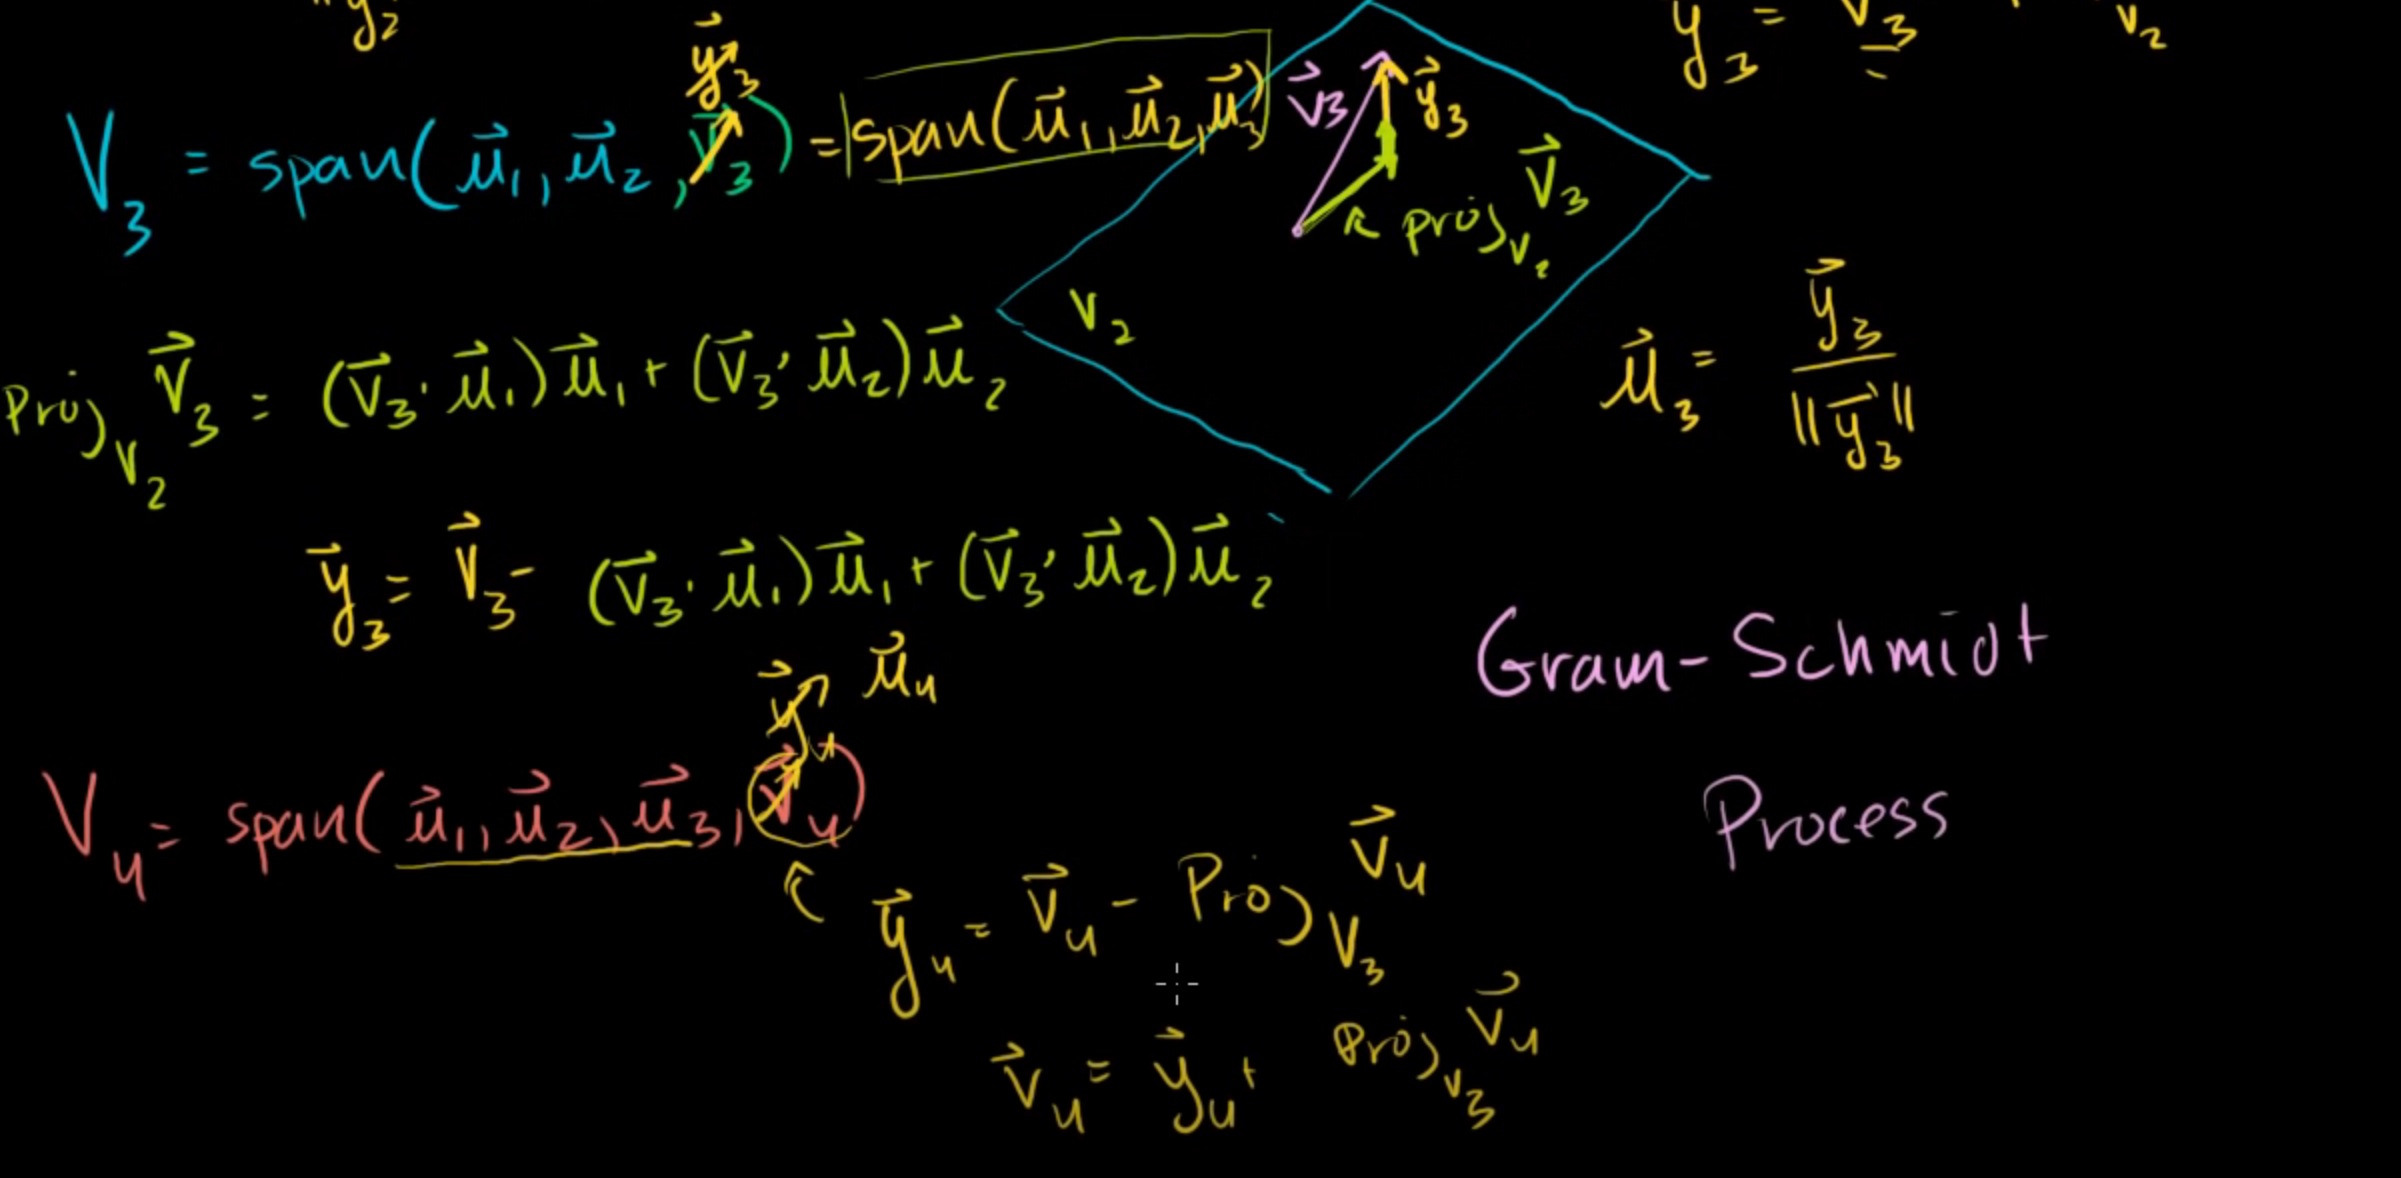 y⃗₂
y⃗₃ = v⃗₃
V₂
V₃ = span(u⃗₁, u⃗₂, v⃗₃) = span(u⃗₁, u⃗₂, u⃗₃)
y⃗₃
v⃗₃
y⃗₃
proj_V₂ v⃗₃
V₂
Proj_V₂ v⃗₃ = (v⃗₃ · u⃗₁)u⃗₁ + (v⃗₃ · u⃗₂)u⃗₂
u⃗₃ = y⃗₃ / ||y⃗₃||
y⃗₃ = v⃗₃ - (v⃗₃ · u⃗₁)u⃗₁ + (v⃗₃ · u⃗₂)u⃗₂
Gram-Schmidt
Process
y⃗₄ u⃗₄
V₄ = span(u⃗₁, u⃗₂, u⃗₃, v⃗₄)
y⃗₄ = v⃗₄ - Proj_V₃ v⃗₄
v⃗₄ = y⃗₄ + Proj_V₃ v⃗₄